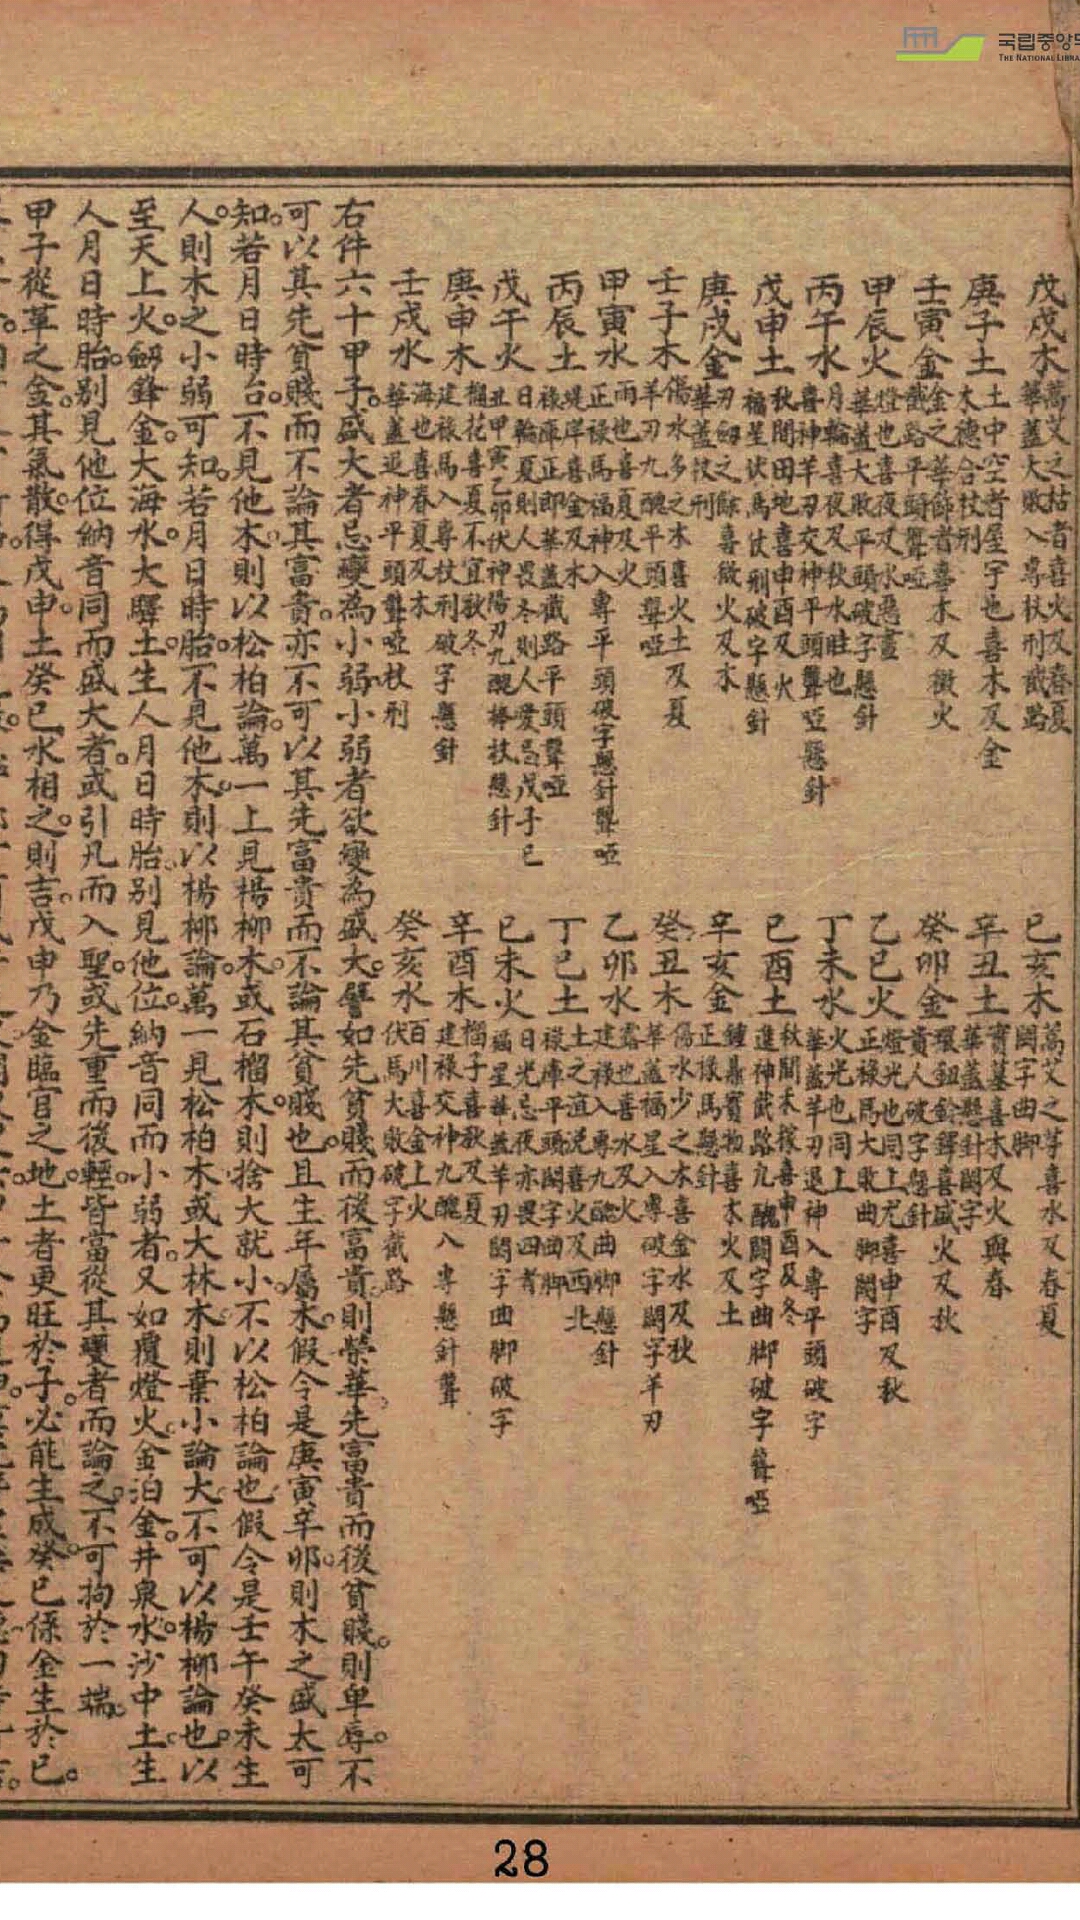 국립중앙도
THE NATIONAL LIBRA
戊戌木 蒿艾之枯者喜火及春夏
華蓋大敗入專杖刑截路
庚子土 土中空者屋宇也喜木及金
木德合杖刑
壬寅金 金之華飾者喜木及微火
截路平頭聾啞
甲辰火 燈也喜夜及水惡晝
華蓋大敗平頭破字懸針
丙午水 月輪喜夜及秋水旺也
喜神羊刃交神平頭聾啞懸針
戊申土 秋間田地喜申酉及火
福星伏馬杖刑破字懸針
庚戌金 刃劒之餘喜微火及木
華蓋杖刑
壬子木 傷水多之木喜火土及夏
羊刃九醜平頭聾啞
甲寅水 雨也喜夏及火
正祿馬福神入專平頭破字懸針聾啞
丙辰土 堤岸喜金及木
祿庫正印華蓋截路平頭聾啞
戊午火 日輪夏則人畏冬則人愛忌戊子己
丑甲寅乙卯伏神陽刃九醜棒杖懸針
庚申木 榴花喜夏不宜秋冬
建祿馬入專杖刑破字懸針
壬戌水 海也喜春夏及木
華蓋退神平頭聾啞杖刑
己亥木 蒿艾之芽喜水及春夏
闕字曲脚
辛丑土 實墓喜木及火與春
華蓋懸針闕字
癸卯金 環鈕鈴鐸喜盛火及秋
貴人破字懸針
乙巳火 燈光也同上尤喜申酉及秋
正祿馬大敗曲脚闕字
丁未水 火光也同上
華蓋羊刃退神入專平頭破字
己酉土 秋間禾稼喜申酉及冬
進神截路九醜闕字曲脚破字聾啞
辛亥金 鍾鼎寶物喜木火及土
正祿馬懸針
癸丑木 傷水少之木喜金水及秋
華蓋福星入專破字闕字羊刃
乙卯水 露也喜水及火
建祿入專九醜曲脚懸針
丁巳土 土之宜𣳚喜火及西北
祿庫平頭闕字曲脚
己未火 日光忌夜亦畏四者
福星華蓋羊刃闕字曲脚破字
辛酉木 榴子喜秋及夏
建祿交神九醜八專懸針聾
癸亥水 百川喜金土火
伏馬大敗破字截路
右件六十甲子盛大者忌變為小弱小弱者欲變為盛大譬如先貧賤而後富貴則榮華先富貴而後貧賤則卑辱不
可以其先貧賤而不論其富貴亦不可以其先富貴而不論其貧賤也且生年屬木假令是庚寅辛卯則木之盛太可
知若月日時台不見他木則以松柏論萬一上見楊柳木或石榴木則捨大就小不以松柏論也假令是壬午癸未生
人則木之小弱可知若月日時胎不見他木則以楊柳論萬一見松柏木或大林木則棄小論大不可以楊柳論也以
至天上火劒鋒金大海水大驛土生人月日時胎別見他位納音同而小弱者又如覆燈火金泊金井泉水沙中土生
人月日時胎別見他位納音同而盛大者或引凡而入聖或先重而後輕皆當從其變者而論之不可拘於一端
甲子從革之金其氣散得戊申土癸巳水相之則吉戊申乃金臨官之地土者更旺於子必能生成癸巳係金生於巳
28